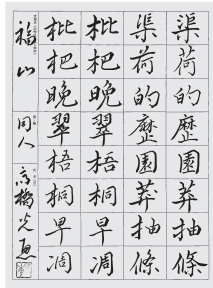 渠荷的歷園莽抽條
渠荷的歷園莽抽條
枇杷晩翠梧桐早凋
枇杷晩翠梧桐早凋
福山 同人 高橋光恵